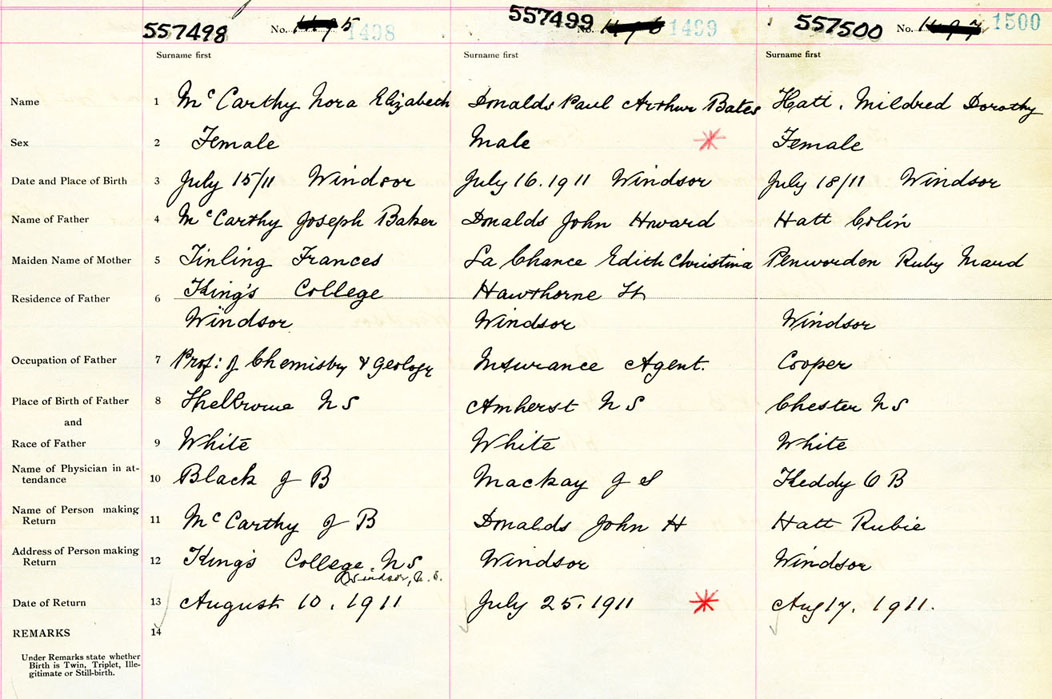 557498 No. 1498 557499 No. 1499 557500 No. 1500
Surname first Surname first Surname first
Name 1 McCarthy Nora Elizabeth Donalds Paul Arthur Bates Hatt, Mildred Dorothy
Sex 2 Female Male Female
Date and Place of Birth 3 July 15/11 Windsor July 16. 1911 Windsor July 18/11 Windsor
Name of Father 4 McCarthy Joseph Baker Donalds John Howard Hatt Colin
Maiden Name of Mother 5 Tinling Frances La Chance Edith Christina Penworden Ruby Maud
Residence of Father 6 King's College Hawthorne St
Windsor Windsor Windsor
Occupation of Father 7 Prof: of Chemistry & Geology Insurance Agent. Cooper
Place of Birth of Father 8 Shelbrowne N S Amherst N S Chester N S
and
Race of Father 9 White White White
Name of Physician in at-
tendance 10 Black J B Mackay J S Keddy O B
Name of Person making
Return 11 McCarthy J B Donalds John H Hatt Rubie
Address of Person making
Return 12 King's College, N S Windsor Windsor
Windsor, N. S.
Date of Return 13 August 10. 1911 July 25. 1911 Aug 17. 1911.
REMARKS 14
Under Remarks state whether
Birth is Twin, Triplet, Ille-
gitimate or Still-birth.